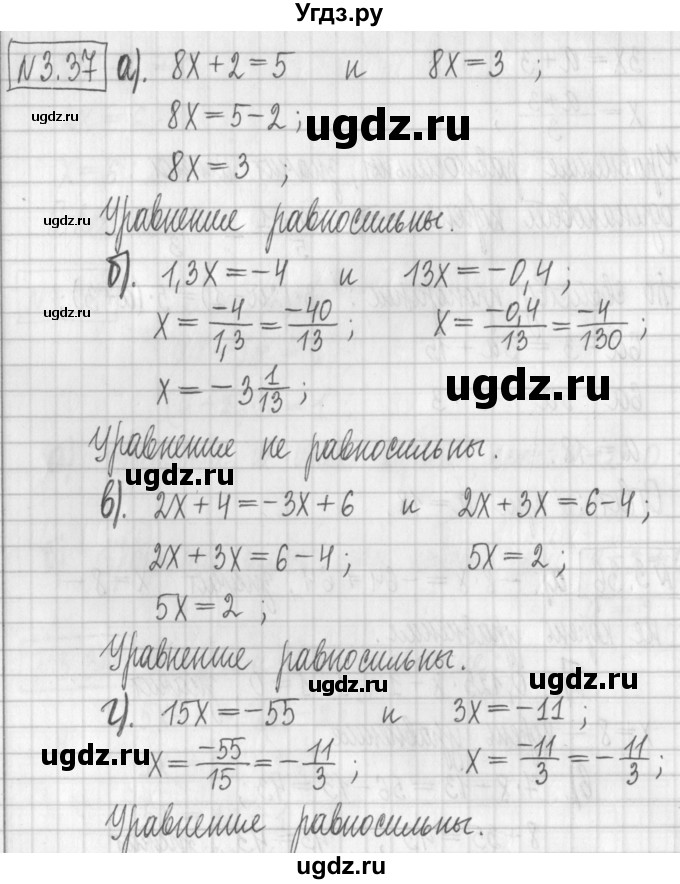 Угдз.ру
№3.37 а). 8x+2=5 и 8x=3 ;
ugdz.ru
8x=5-2;
ugdz.ru
8x=3 ;
ugdz.ru
Уравнение равносильны.
б). 1,3x=-4 и 13x=-0,4;
ugdz.ru
x=-4/1,3=-40/13; x=-0,4/13=-4/130;
x=-3 1/13;
ugdz.ru
Уравнение не равносильны.
ugdz.ru
в). 2x+4=-3x+6 и 2x+3x=6-4;
2x+3x=6-4; 5x=2 ;
5x=2 ;
Уравнение равносильны.
ugdz.ru
г). 15x=-55 и 3x=-11 ;
ugdz.ru
x=-55/15=-11/3; x=-11/3=-11/3;
ugdz.ru
Уравнение равносильны.
ugdz.ru
ugdz.ru